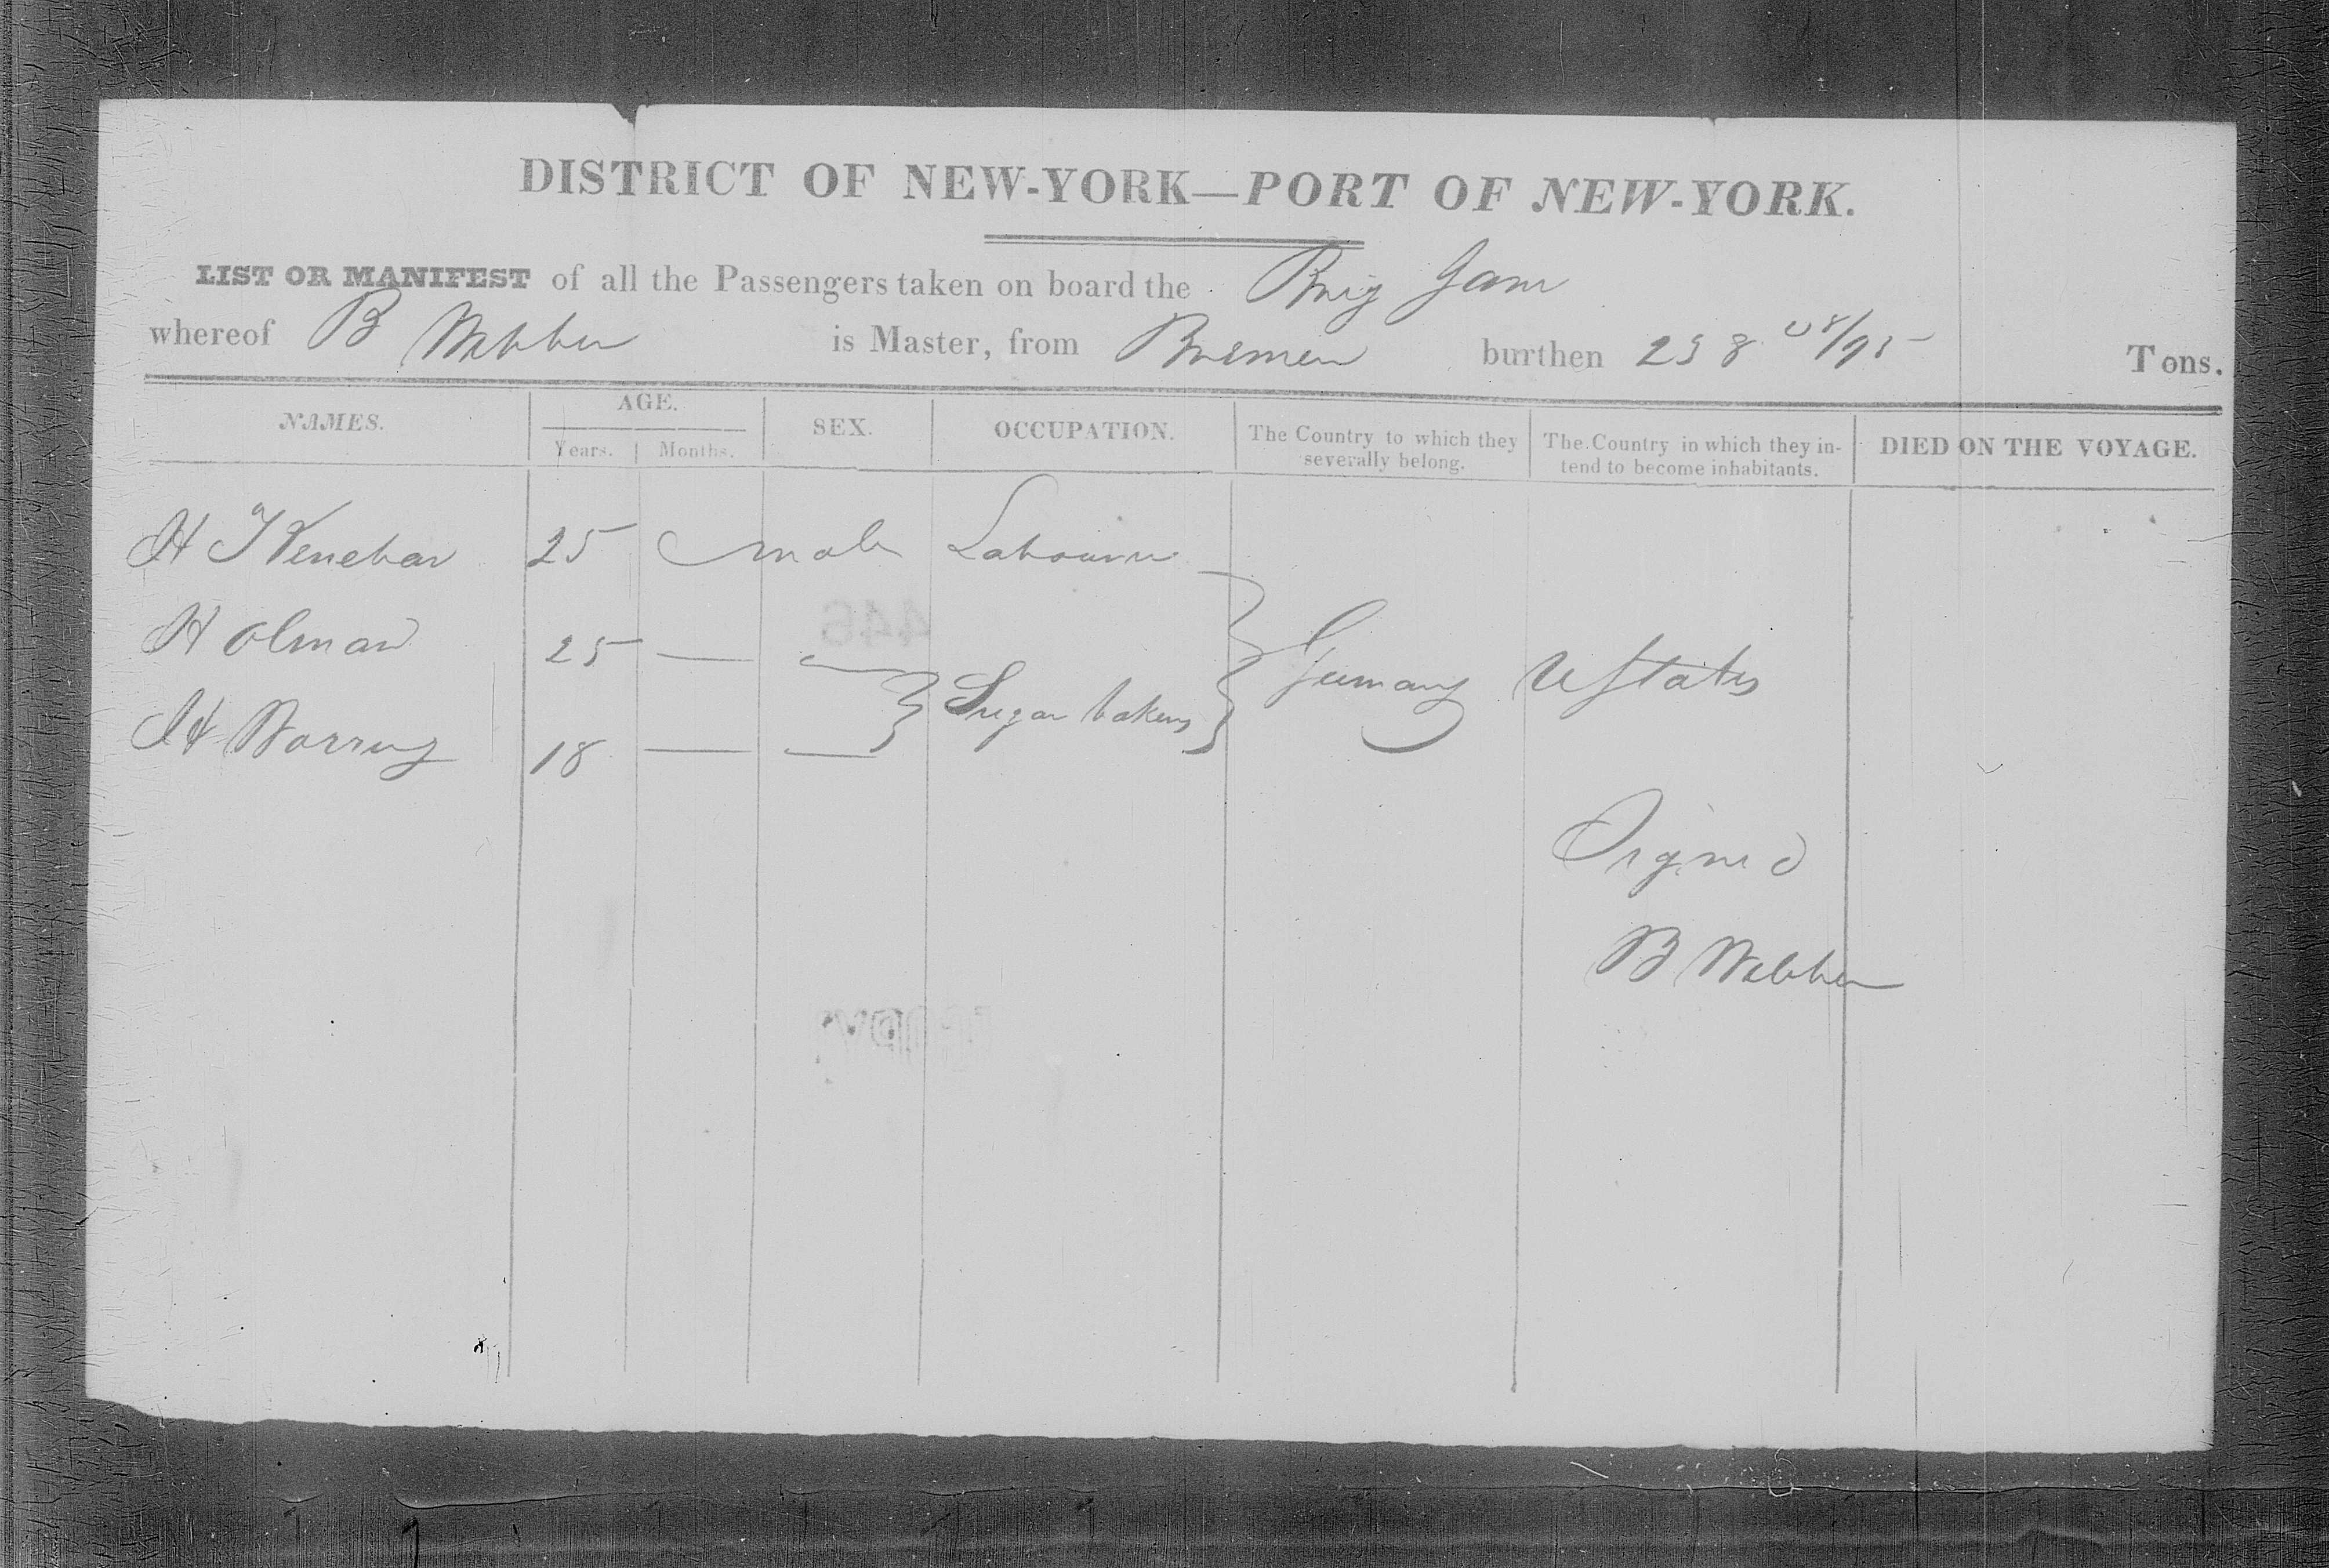 DISTRICT OF NEW-YORK—PORT OF NEW-YORK.
LIST OR MANIFEST of all the Passengers taken on board the Brig Jane
whereof B Webber is Master, from Bremen burthen 238 08/95 Tons.
NAMES. AGE. SEX. OCCUPATION. The Country to which they severally belong. The Country in which they in-tend to become inhabitants. DIED ON THE VOYAGE.
Years. Months.
H 25 male Labourer
Holman 25 —
H 18 — — Sugar bakers Germany U States
Signed
B Webber
446